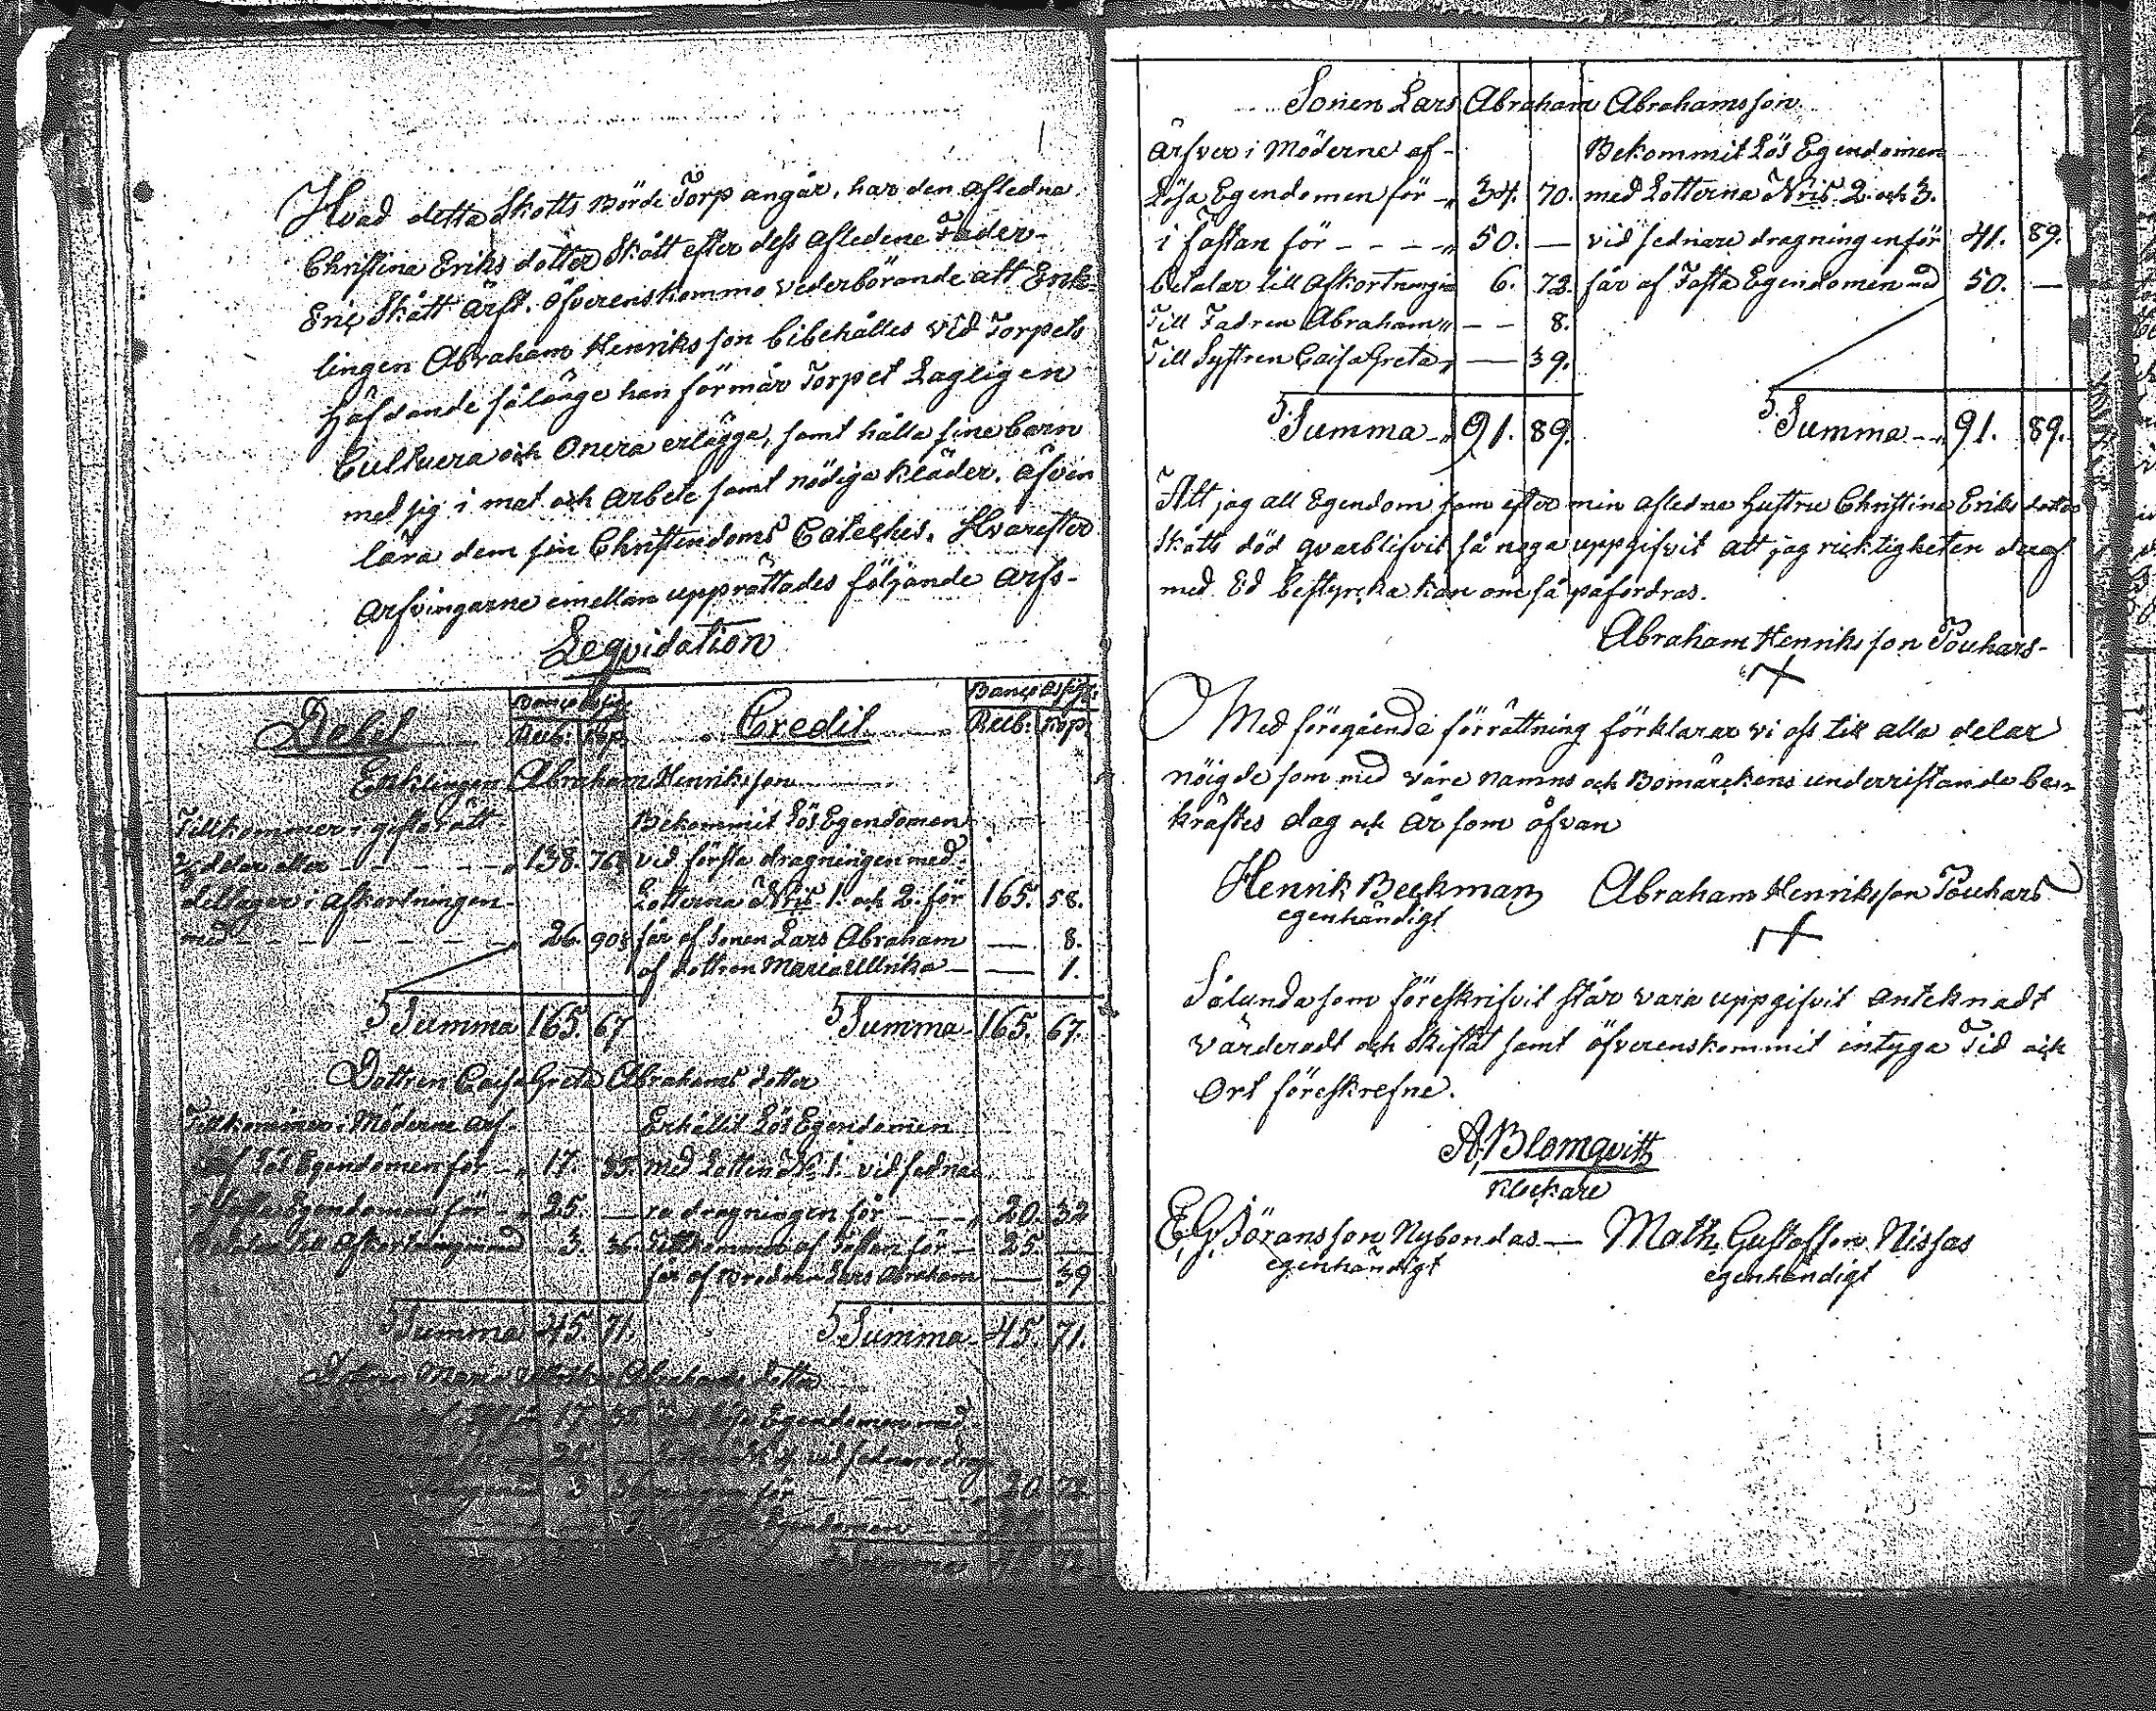 Hvad detta Skotts Börde Torp angår, har den afledna
Christina Eriks dotter Skått efter dess afledene Fader
Eric Skått Ärft. Öfverenskommo vederbörande att Enk-
lingen Abraham Henriks son bibehålles vid Torpets
Häfdande så länge han förmår Torpet Lagligen
Cultuera och Onera erlägga, samt hålla sine barn
med sig i mat och Arbete samt nödiga kläder. Äfven
lära dem sin Christendoms Cateches. Hvarefter
Arfvingarne emellan upprättades följande Arfs-
Leqvidation
Debit Banco Assign: Rub: Kop. Credit Banco Assign: Rub: Kop.
Enklingen Abraham Henriksson
Tillkommer i giftorätt Bekommit Lös Egendomen
2/3 delar eller 138. 76 2/3 vid första dragningen med
deltager i Afkortningen Lotterna N:ris 1. och 2. för 165. 58.
med 26. 90 1/3 får af Sonen Lars Abraham — 8.
af dottren Maria Ullrika — 1.
Summa 165. 67 Summa 165. 67.
Dottren Caisa Greta Abrahams dotter
Tillkommer i Möderne arf Erhållit Lös Egendomen
af Lös Egendomen för 17. 35. med Lotten N:o 1. vid sedna-
i fasta Egendomen för 25. — re dragningen för 20. 32
Betalar till Afkortning med 3. 36. Tillkommer af Fastan för 25. —
får af Brodren Lars Abraham — 39
Summa 45. 71. Summa 45. 71.
Dottren Maria Ullrika Abrahams dotter
17 35 Egendomen med
25 — Lotten N:o 4 vid sednare drag-
3 36 ningen för 20 72
Sonen Lars Abraham Abrahamsson
Ärfver i Möderne af Bekommit Lös Egendomen
Lösa Egendomen för 34. 70. med Lotterna N:ris 2. och 3.
i Fastan för 50. — vid sednare dragningen för 41. 89.
betalar till Afkortningen 6. 72. får af Fasta Egendomen med 50. —
Till Fadren Abraham — 8.
Till Systren Caisa Greta — 39.
Summa 91. 89. Summa 91. 89.
Att jag all Egendom som efter min afledna Hustru Christina Eriks dotter
Skåtts död qvarblifvit så noga uppgifvit att jag riktigheten deraf
med Ed bestyrcka kan om så påfordras.
Abraham Henriksson Touhars
Med föregående förrättning förklarar vi oss till alla delar
nöigde som med våre namns och Bomärckens underristande be-
kräftes dag och År som öfvan
Henrik Beckman Abraham Henriksson Touhars
egenhändigt
Sålunda som föreskrifvit står vara uppgifvit Anteknadt
Värderadt och Skiftat samt öfverenskommit intyga Tid och
Ort föreskrefne.
A. Blomqvist
Klockare
E. Göransson Nybondas — Math. Gustafsson Nissas
egenhändigt egenhändigt